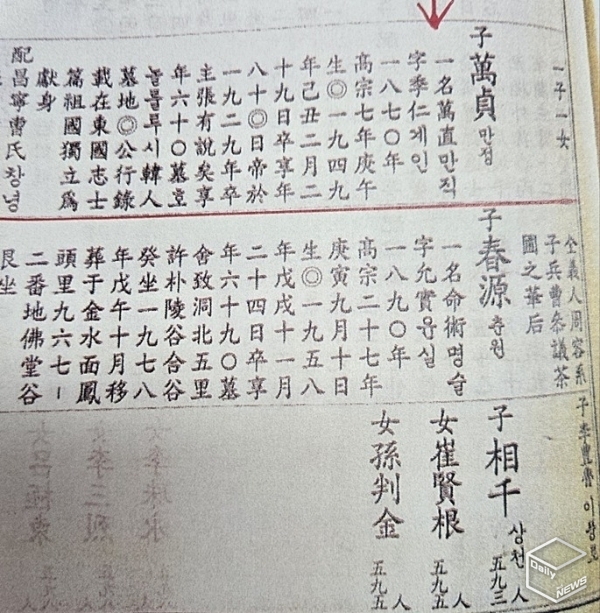 一子一女
子萬貞만정
一名萬直만직
字季仁계인
一八七〇年
高宗七年庚午
生◎一九四九
年己丑二月二
十九日卒享年
八十◎日帝於
一九二九年卒
主張有說矣享
年六十〇墓호
놀룰루시韓人
墓地◎公行錄
載在東國志士
篇祖國獨立爲
獻身
配昌寧曺氏창녕
全義人周容系
子兵曹參議茶
圖之華后
子春源춘원
一名命術명술
字允實윤실
一八九〇年
高宗二十七年
庚寅九月十日
生◎一九五八
年戊戌十一月
二十四日卒享
年六十九〇墓
舍致洞北五里
許朴陵谷合谷
癸坐一九七八
年戊午十月移
葬于金水面鳳
頭里九六七ㅣ
二番地佛堂谷
艮坐
子李豊魯이
子相千상천五九三人
女崔賢根五九五人
女孫判金五九五人
Daily NEWS